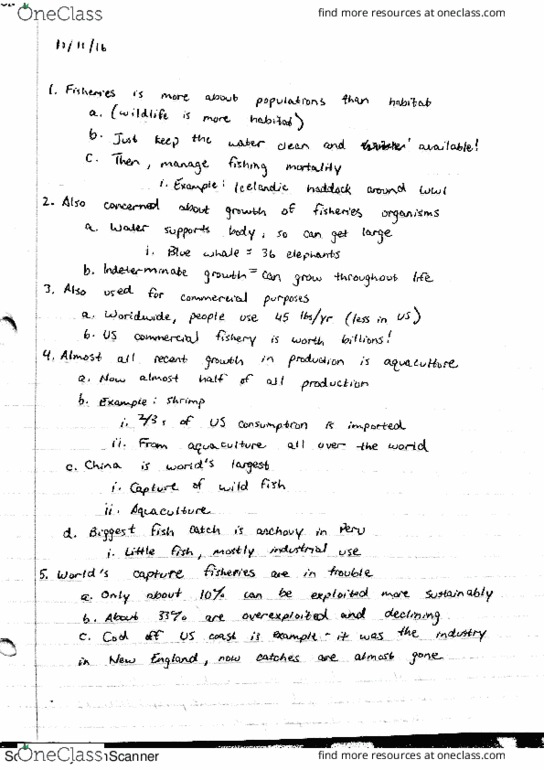 OneClass
find more resources at oneclass.com
10/11/16
1. Fisheries is more about populations than habitat
a. (wildlife is more habitat)
b. Just keep the water clean and available!
c. Then, manage fishing mortality
i. Example: Icelandic haddock around WWI
2. Also concerned about growth of fisheries organisms
a. Water supports body, so can get large
i. Blue whale = 36 elephants
b. Indeterminate growth = can grow throughout life
3. Also used for commercial purposes
a. Worldwide, people use 45 lbs/yr (less in US)
b. US commercial fishery is worth billions!
4. Almost all recent growth in production is aquaculture
a. Now almost half of all production
b. Example: shrimp
i. 2/3s of US consumption is imported
ii. From aquaculture all over the world
c. China is world's largest
i. Capture of wild fish
ii. Aquaculture
d. Biggest fish catch is anchovy in Peru
i. Little fish, mostly industrial use
5. World's capture fisheries are in trouble
a. Only about 10% can be exploited more sustainably
b. About 33% are overexploited and declining
c. Cod off US coast is example - it was the industry
in New England, now catches are almost gone
OneClass
Scanner
find more resources at oneclass.com